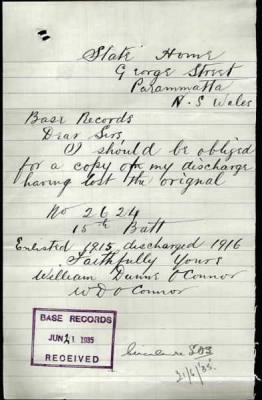 State Home
George Street
Paramatta
N. S Wales
Base Records
Dear Sirs
I should be obliged
for a copy of my discharge
having lost the orignal
No 2624
15th Batt
Enlisted 1915 discharged 1916
Faithfully Yours
William Dunne O'Connor
W D O'Connor
BASE RECORDS
JUN 21 1935
RECEIVED
21/6/35.